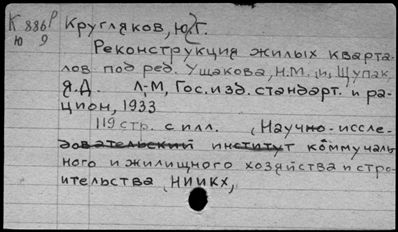 К 886Р
ю 9
Кругляков, Ю.Г.
Реконструкция жилых кварта-
лов под ред. Ушакова, Н.М. и, Щупак,
Я.Д. Л-М, Гос. изд. стандарт. и ра-
цион, 1933
119 стр. с илл. (Научно-иссле-
довательский институт коммуналь
ного и жилищного хозяйства и стро-
ительства НИИКХ,